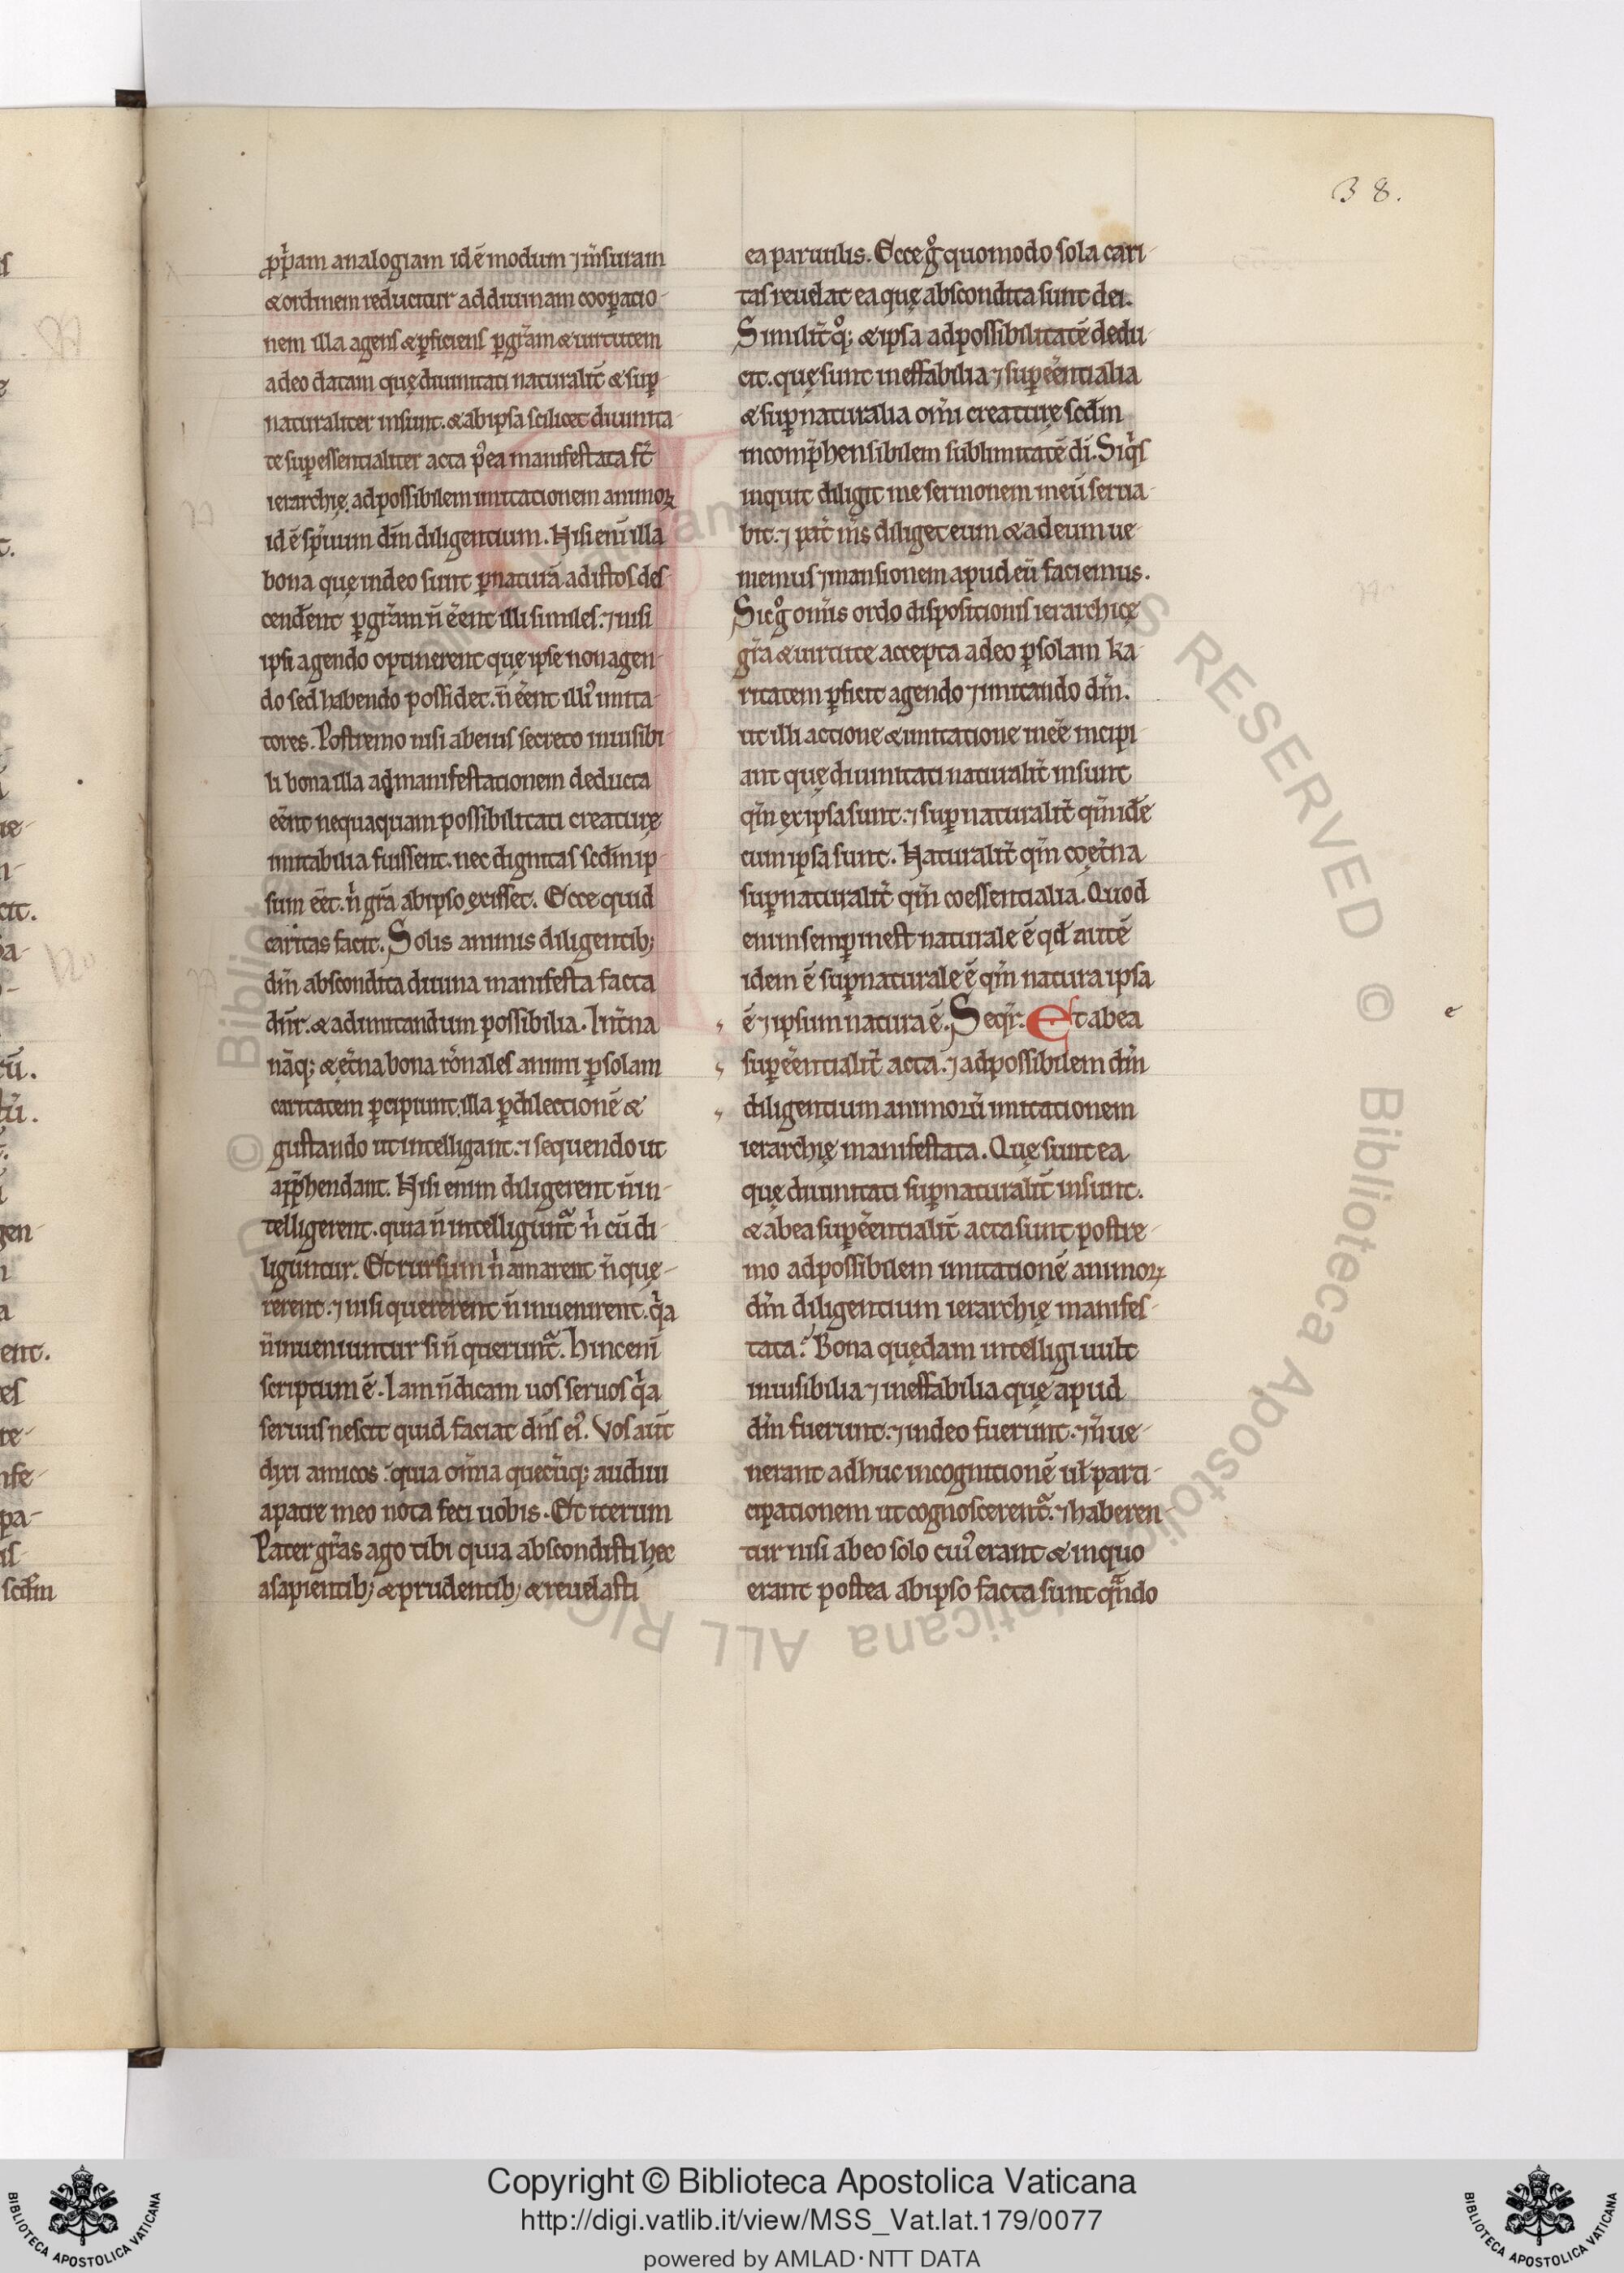 38.
ꝓp̃am analogiam id ẽ modum ⁊ m̃suram
&ordinem reducitur ad diuinam cooꝑatio-
nem illa agens &ꝑficiens ꝑ gr̃am &uirtutem
a deo datam quę diuinitati naturalit̃ & suꝑ
naturaliter insunt. &ab ipsa scilicet diuinita-
te superessentialiter acta p̾ ea manifestata st̃
ierarchię. ad possibilem imitationem animoꝝ
id ẽ sp̃uum dm̃ diligentium. Nisi eni illa
bona que in deo sunt ꝑ naturã ad istos des-
cendent ꝑ gr̃am ñ ẽent illi similes. ⁊ nisi
ipsi agendo optinerent quę ipse non agen-
do sed habendo possidet. ñ ẽent illiꝰ imita-
tores. Postremo nisi ab eius secreto inuisibi-
li bona illa ad manifestationem deducta
ẽent nequaquam possibilitati creaturę
imitabilia fuissent. nec dignitas scdm ip-
sum ẽet. ñ gr̃a ab ipso exisset. Ecce quid
caritas facit. Solis animis diligentib;
dm̃ abscondita diuina manifesta facta
dñr. &ad imitandum possibilia. Int̃na
nãq; &ęt̃na bona rõnales animi ꝑ solam
caritatem ꝑcipiunt. illa ꝑ dilectionẽ &
gustando ut intelligant. ⁊ sequendo ut
app̃hendant. Nisi enim diligerent ñ in-
telligerent. quia ñ intelligunt᷑ ñ cũ di-
liguntur. Et rursum ñ amarent ñ quę-
rerent. ⁊ nisi quererent ñ inuenirent. q̃a
ñ inueniuntur si ñ querunt᷑. Hinc eni
scriptum ẽ. Iam ñ dicam uos seruos q̃a
seruus nescit quid faciat dñs eiꝰ. Vos aut̃
dixi amicos. quia om̃ia quecũq; audiui
a patre meo nota feci uobis. Et iterum
Pater gr̃as ago tibi quia abscondisti hęc
a sapientib; &prudentib; &reuelasti
ea paruulis. Ecce gͦ quomodo sola cari-
tas reuelat ea quę abscondita sunt dei.
Similit̃ qͦ; &ipsa ad possibilitatẽ dedu-
cit. quę sunt ineffabilia ⁊ suꝑẽentialia
&suꝑnaturalia om̃i creaturę scdm
incomp̃hensibilem sublimitatẽ di. Siq̃s
inquit diligit me sermonem meũ serua-
bit. ⁊ pat̃ m̃s diliget eum &ad eum ue-
niemus ⁊ mansionem apud eũ faciemus.
Sic gͦ om̃is ordo dispositionis ierarchicę
gr̃a &uirtute accepta a deo ꝑ solam ka-
ritatem ꝑficit agendo ⁊ imitando dm̃.
ut illi actione &imitatione inẽe incipi-
ant quę diuinitati naturalit̃ insunt
qm̃ ex ipsa sunt. ⁊ suꝑnaturalit̃ qm̃ idẽ
cum ipsa sunt. Naturalit̃ qm̃ coęt̃na
suꝑnaturalit̃ qm̃ coessentialia. Quod
enim semꝑ inest naturale ẽ qd̃ autẽ
idem ẽ suꝑnaturale ẽ qm̃ natura ipsa
ẽ ⁊ ipsum natura ẽ. Seqr̃. Et ab ea
suꝑẽentialit̃ acta. ⁊ ad possibilem dm̃
diligentium animorũ imitationem
ierarchię manifestata. Quę sunt ea
quę diuinitati suꝑnaturalit̃ insunt.
&ab ea suꝑẽentialit̃ acta sunt postre-
mo ad possibilem imitationẽ animoꝝ
dm̃ diligentium ierarchię manifes-
tata? Bona quędam intelligi uult
inuisibilia ⁊ ineffabilia quę apud
dm̃ fuerunt. ⁊ in deo fuerunt. ⁊ ñ ue-
nerant adhuc in cognitionẽ uł parti-
cipationem ut cognoscerent᷑. ⁊ haberen-
tur nisi ab eo solo cuiꝰ erant & in quo
erant postea ab ipso facta sunt qñdo
e
Copyright © Biblioteca Apostolica Vaticana
http://digi.vatlib.it/view/MSS_Vat.lat.179/0077
powered by AMLAD·NTT DATA
BIBLIOTECA APOSTOLICA VATICANA
BIBLIOTECA APOSTOLICA VATICANA